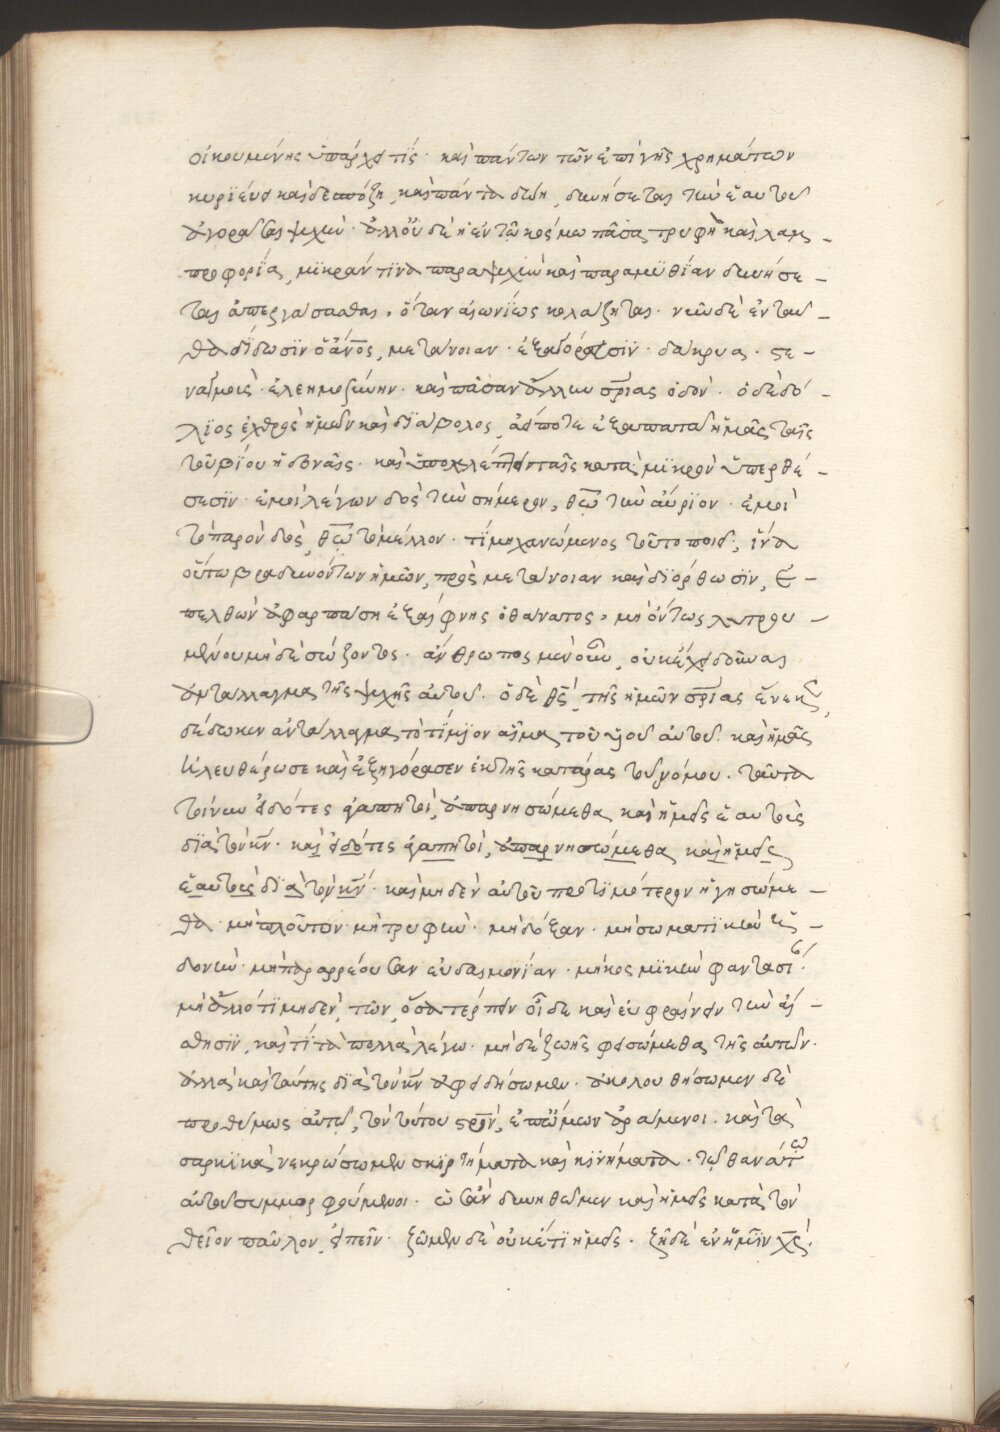 οἰκουμένης ὑπάρχει τίς · καὶ πάντων τῶν ἐπὶ γῆς χρημάτων
κυριεύει καὶ δεσπόζη, καὶ πάντα δώῃ, δυνήσεται τὴν ἑαυτοῦ
ἀγορᾶσαι ψυχήν · ἀλλ' οὐδὲ ἡ ἐν τῷ κόσμω πᾶσα τρυφὴ καὶ λαμ-
προφορΐα, μϊκράν τϊνα παραψυχὴν καὶ παραμϋθΐαν δυνήσε-
ται ἀπεργάσασθαι, ὅταν αἰωνΐως κολάζηται · νῦν δὲ ἐνταῦ-
θα δΐδωσϊν ὁ ἄνος, μετάνοιαν · ἐξαγόρασϊν · δάκρυα · στε-
ναγμοὺς · ἐλεημοσύνην · καὶ πᾶσαν ἄλλην σρΐας ὁδόν · ὁ δὲ δό-
λϊος ἐχθρὸς ἡμῶν καὶ δϊάβολος, ἀεί ποτε ἐξαπατᾶ ἡμᾶς ταῖς
τοῦ βΐου ἡδοναῖς · καὶ ὑποκλέπτει ταῖς κατὰ μϊκρὸν ὑπερθέ-
σεσϊν · ἐμοὶ λέγων δὸς τὴν σήμερον, θῶ τὴν αὔρϊον · ἐμοὶ
τὸ παρὸν δὸς, θῶ τὸ μέλλον · τί μηχανώμενος τοῦτο ποιεῖ, ἵνα
οὕτω βραδυνόντων ἡμῶν, πρὸς μετάνοιαν καὶ δϊόρθωσϊν, ἐ-
πελθὼν ἀφαρπάση ἐξαίφνης ὁ θάνατος, μὴ ὄντως λυτρου-
μένου μὴδὲ σώζοντος · ἄνθρωπος μὲν οὖν, οὐκ ἔχει δοῦναι
ἀντάλλαγμα τῆς ψυχῆς αὐτοῦ · ὁ δὲ θς, τῆς ἡμῶν σρΐας ἕνεκεν,
δέδωκεν ἀντάλλαγμα τὸ τίμϊον αἷμα τοῦ ὑοῦ αὐτοῦ · καὶ ἡμᾶς
ἠλευθέρωσε καὶ ἐξηγόρασεν ἐκ τῆς κατάρας τοῦ νόμου · ταῦτα
τοίνυν εἰδότες ἀγαπητοὶ, ἀπαρνησώμεθα καὶ ἡμεῖς ἑαυτοὺς
δϊὰ τὸν κν · καὶ εἰδότες ἀγαπητοὶ, ἀπαρνησώμεθα καὶ ἡμεῖς
ἑαυτοὺς δϊὰ τὸν κν · καὶ μηδὲν αὐτοῦ προτϊμότερον ἡγησώμε-
θα · μὴ πλοῦτον · μὴ τρυφὴν · μὴ δόξαν · μὴ σωματϊκὴν ἡ-
δονὴν · μὴ παραρρέουσαν εὐδαιμονΐαν · μὴ κοσμϊκὴν φαντασί ·
μὴ ἄλλό τί μηδέν, τῶν, ὅσα τέρπειν οἶδε καὶ εὐφραίνειν τὴν αἴ-
σθησϊν, καὶ τΐ τὰ πολλὰ λέγω · μὴ δὲ ζωῆς φεισώμεθα τῆς αὐτῶν ·
ἀλλὰ καὶ ταύτης δϊὰ τὸν κν ἀφειδήσωμεν · ἀκολουθήσωμεν δὲ
προθύμως αὐτῶ, τὸν τούτου στρὸν, ἐπ' ὤμων ἀράμενοι · καὶ τὰ
σαρκϊκὰ νεκρώσωμεν σκϊρτήματα καὶ κϊνήματα · τῶ θανάτω
αὐτοῦ συμμορφούμενοι · ὡσὰν δυνηθῶμεν καὶ ἡμεῖς κατὰ τὸν
θεῖον παῦλον, εἰπεῖν · ζῶμεν δὲ οὐκέτϊ ἡμεῖς · ζῆ δὲ ἐν ἡμῖν χς ·